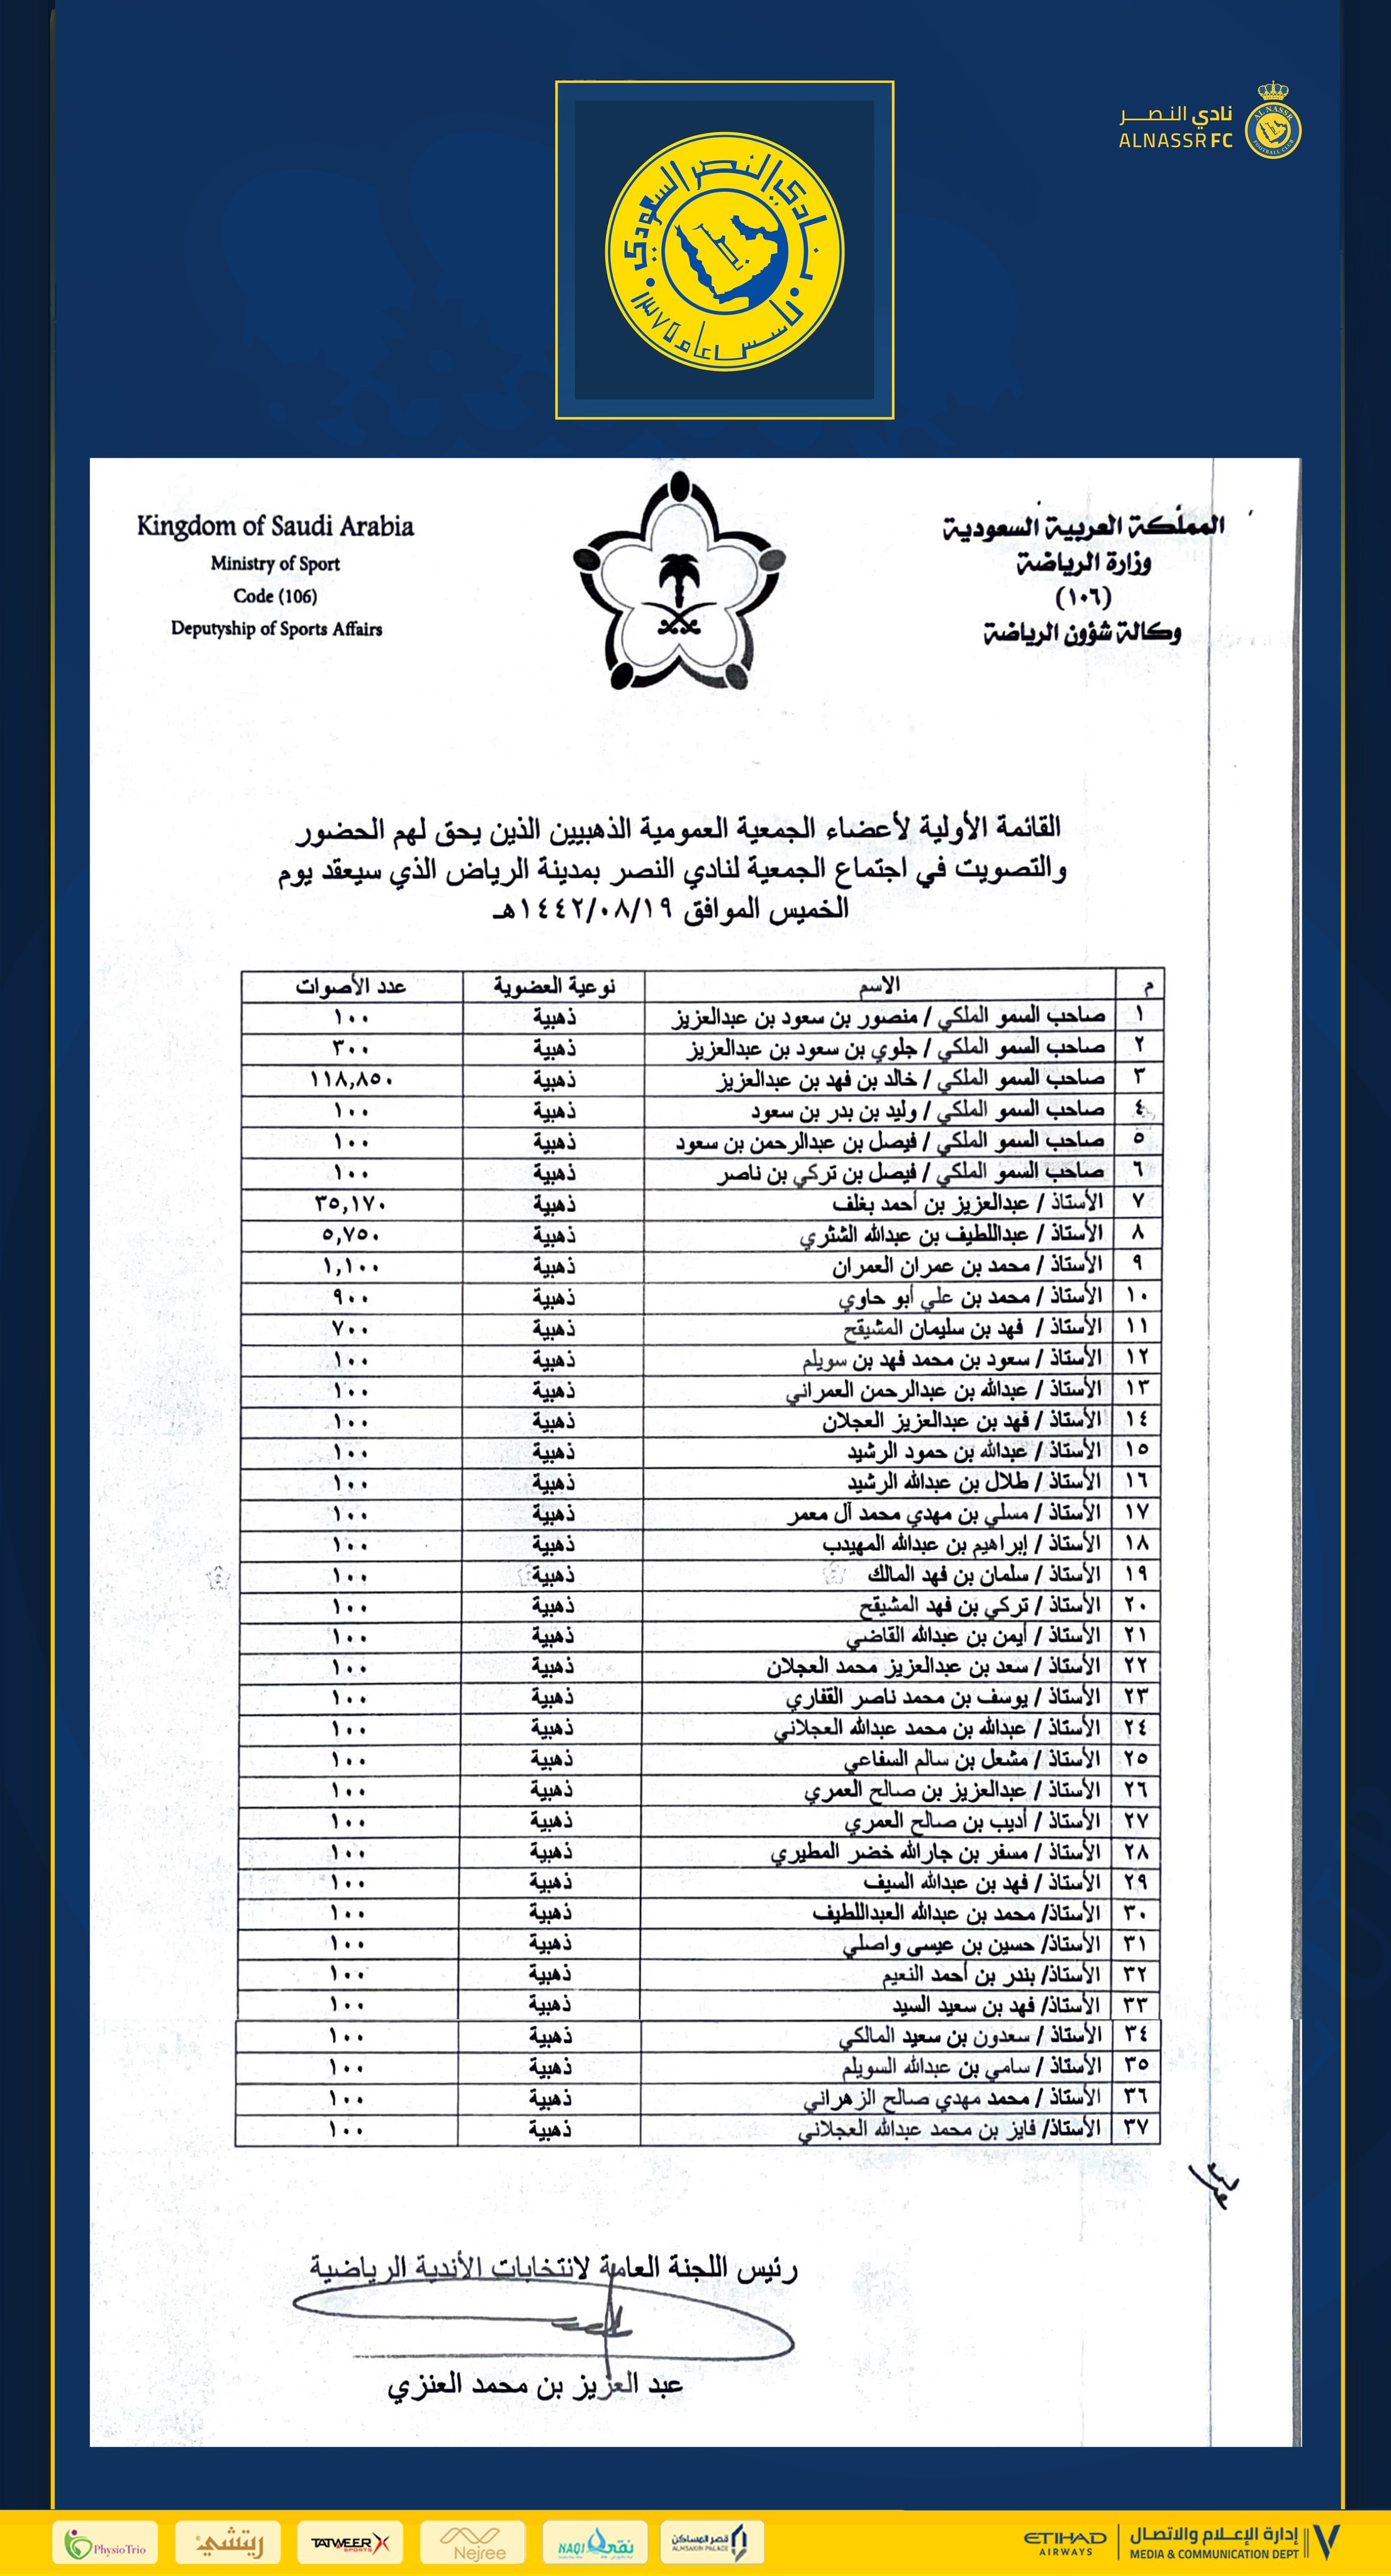 نادي النصر
ALNASSR FC
AL NASSR
FOOTBALL CLUB
نادي النصر السعودي
تأسس عام ١٣٧٥
Kingdom of Saudi Arabia
Ministry of Sport
Code (106)
Deputyship of Sports Affairs
المملكة العربية السعودية
وزارة الرياضة
(١٠٦)
وكالة شؤون الرياضة
القائمة الأولية لأعضاء الجمعية العمومية الذهبيين الذين يحق لهم الحضور
والتصويت في اجتماع الجمعية لنادي النصر بمدينة الرياض الذي سيعقد يوم
الخميس الموافق ١٤٤٢/٠٨/١٩هـ
م الاسم نوعية العضوية عدد الأصوات
١ صاحب السمو الملكي / منصور بن سعود بن عبدالعزيز ذهبية ١٠٠
٢ صاحب السمو الملكي / جلوي بن سعود بن عبدالعزيز ذهبية ٣٠٠
٣ صاحب السمو الملكي / خالد بن فهد بن عبدالعزيز ذهبية ١١٨,٨٥٠
٤ صاحب السمو الملكي / وليد بن بدر بن سعود ذهبية ١٠٠
٥ صاحب السمو الملكي / فيصل بن عبدالرحمن بن سعود ذهبية ١٠٠
٦ صاحب السمو الملكي / فيصل بن تركي بن ناصر ذهبية ١٠٠
٧ الأستاذ / عبدالعزيز بن أحمد بغلف ذهبية ٣٥,١٧٠
٨ الأستاذ / عبداللطيف بن عبدالله الشثري ذهبية ٥,٧٥٠
٩ الأستاذ / محمد بن عمران العمران ذهبية ١,١٠٠
١٠ الأستاذ / محمد بن علي أبو حاوي ذهبية ٩٠٠
١١ الأستاذ / فهد بن سليمان المشيقح ذهبية ٧٠٠
١٢ الأستاذ / سعود بن محمد فهد بن سويلم ذهبية ١٠٠
١٣ الأستاذ / عبدالله بن عبدالرحمن العمراني ذهبية ١٠٠
١٤ الأستاذ / فهد بن عبدالعزيز العجلان ذهبية ١٠٠
١٥ الأستاذ / عبدالله بن حمود الرشيد ذهبية ١٠٠
١٦ الأستاذ / طلال بن عبدالله الرشيد ذهبية ١٠٠
١٧ الأستاذ / مسلي بن مهدي محمد آل معمر ذهبية ١٠٠
١٨ الأستاذ / إبراهيم بن عبدالله المهيدب ذهبية ١٠٠
١٩ الأستاذ / سلمان بن فهد المالك ذهبية ١٠٠
٢٠ الأستاذ / تركي بن فهد المشيقح ذهبية ١٠٠
٢١ الأستاذ / أيمن بن عبدالله القاضي ذهبية ١٠٠
٢٢ الأستاذ / سعد بن عبدالعزيز محمد العجلان ذهبية ١٠٠
٢٣ الأستاذ / يوسف بن محمد ناصر القفاري ذهبية ١٠٠
٢٤ الأستاذ / عبدالله بن محمد عبدالله العجلاني ذهبية ١٠٠
٢٥ الأستاذ / مشعل بن سالم السفاعي ذهبية ١٠٠
٢٦ الأستاذ / عبدالعزيز بن صالح العمري ذهبية ١٠٠
٢٧ الأستاذ / أديب بن صالح العمري ذهبية ١٠٠
٢٨ الأستاذ / مسفر بن جارالله خضر المطيري ذهبية ١٠٠
٢٩ الأستاذ / فهد بن عبدالله السيف ذهبية ١٠٠
٣٠ الأستاذ/ محمد بن عبدالله العبداللطيف ذهبية ١٠٠
٣١ الأستاذ/ حسين بن عيسى واصلي ذهبية ١٠٠
٣٢ الأستاذ/ بندر بن أحمد النعيم ذهبية ١٠٠
٣٣ الأستاذ/ فهد بن سعيد السيد ذهبية ١٠٠
٣٤ الأستاذ / سعدون بن سعيد المالكي ذهبية ١٠٠
٣٥ الأستاذ / سامي بن عبدالله السويلم ذهبية ١٠٠
٣٦ الأستاذ / محمد مهدي صالح الزهراني ذهبية ١٠٠
٣٧ الأستاذ/ فايز بن محمد عبدالله العجلاني ذهبية ١٠٠
رئيس اللجنة العامة لانتخابات الأندية الرياضية
عبد العزيز بن محمد العنزي
PhysioTrio
ريتشي
TATWEER X
SPORTS
Nejree
NAQI نقي
قصر المساكن
ALMSAKIN PALACE
ETIHAD
AIRWAYS
إدارة الإعلام والاتصال
MEDIA & COMMUNICATION DEPT